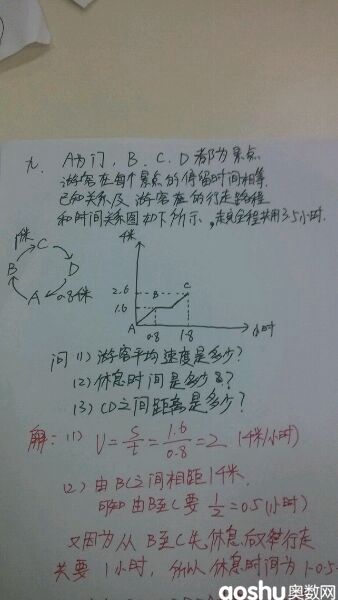 九. A为门, B、C、D都为景点
游客在每个景点的停留时间相等.
已知关系及游客在的行走路程
和时间关系图如下所示,走完全程共用3.5小时.
1千米
C
B
D
A
0.8千米
千米
2.6
1.6
A
B
C
0.8
1.8
小时
问(1)游客平均速度是多少?
(2)休息时间是多少?
(3)CD之间距离是多少?
解: (1) V=S/t=1.6/0.8=2 (千米/小时)
(2) 由BC之间相距1千米.
即知由B至C要 1/2=0.5(小时)
又因为从B至C先休息后又举行走
共要1小时, 所以休息时间为1-0.5
aoshu奥数网
.com